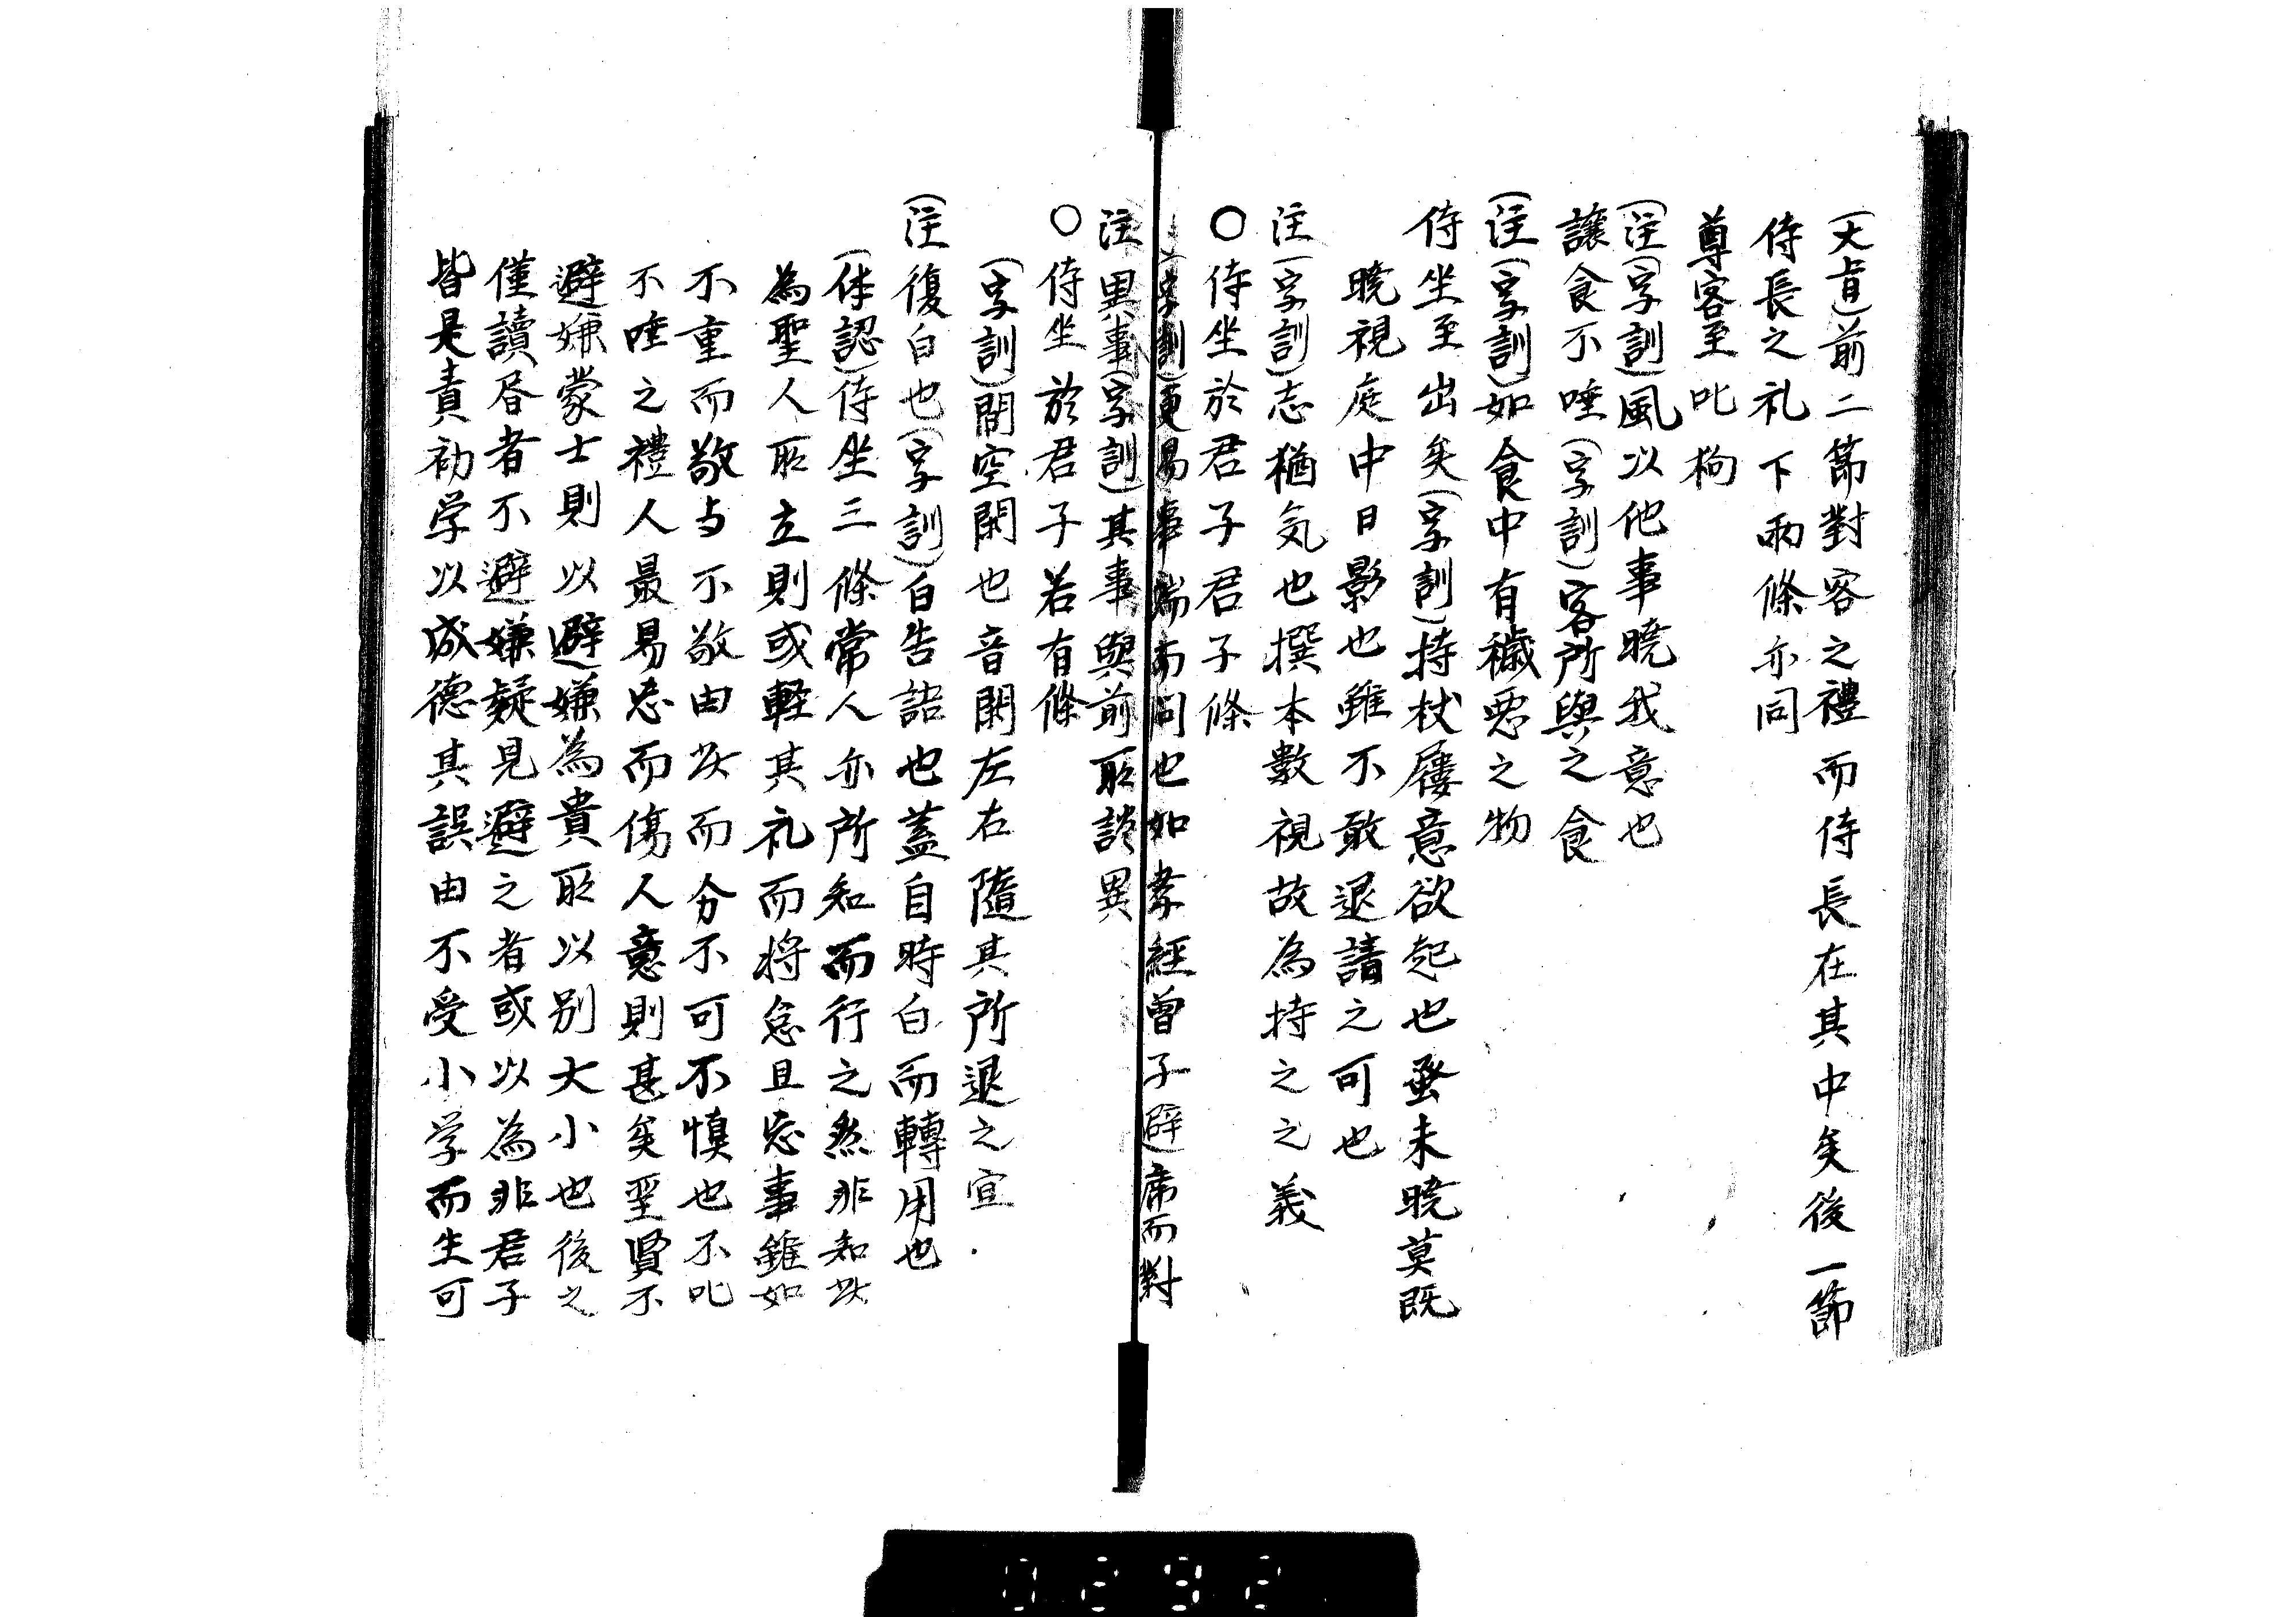 (大旨)前二節對客之禮而侍長在其中矣後一節
侍長之礼下両條亦同
尊客至叱狗
(注)(字訓)風以他事曉我意也
讓食不唾(字訓)客所與之食
(注)(字訓)如食中有穢悪之物
侍坐至出矣(字訓)持杖屨意欲起也蚤未曉莫既
曉視庭中日影也雖不敢退請之可也
注(字訓)志猶気也撰本數視故為持之之義
○侍坐於君子君子條
(字訓)更易事端而問也如孝経曽子避席而對
注異事(字訓)其事與前所談異
○侍坐於君子若有條
(字訓)間空閑也音閑左右隨其所退之宜
(注)復白也(字訓)白告語也蓋自時白而轉用也
(体認)侍坐三條常人亦所知而行之然非知此
為聖人所立則或軽其礼而将怠且忘事雖如
不重而敬与不敬由此而分不可不慎也不叱
不唾之禮人最易忘而傷人意則甚矣聖賢不
避嫌蒙士則以避嫌為貴所以别大小也後之
僅讀昏者不避嫌疑見避之者或以為非君子
皆是責初学以成德其誤由不受小学而生可
0292